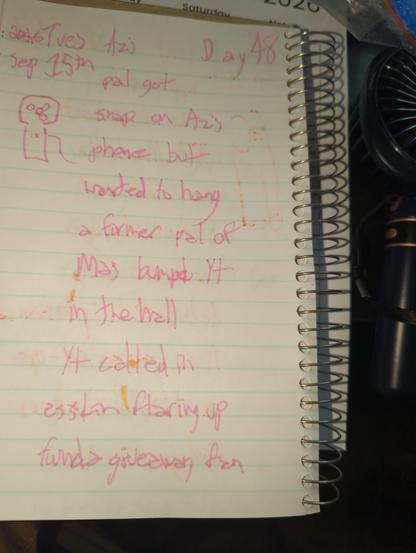 Saturday
2026
Tues Azis Day 48
Sep 15th
pal got
snap on Azis
phone but
wanted to hang
a former pal of
Mas bumped Yt
in the hall
Yt called in
up
funds giveaway